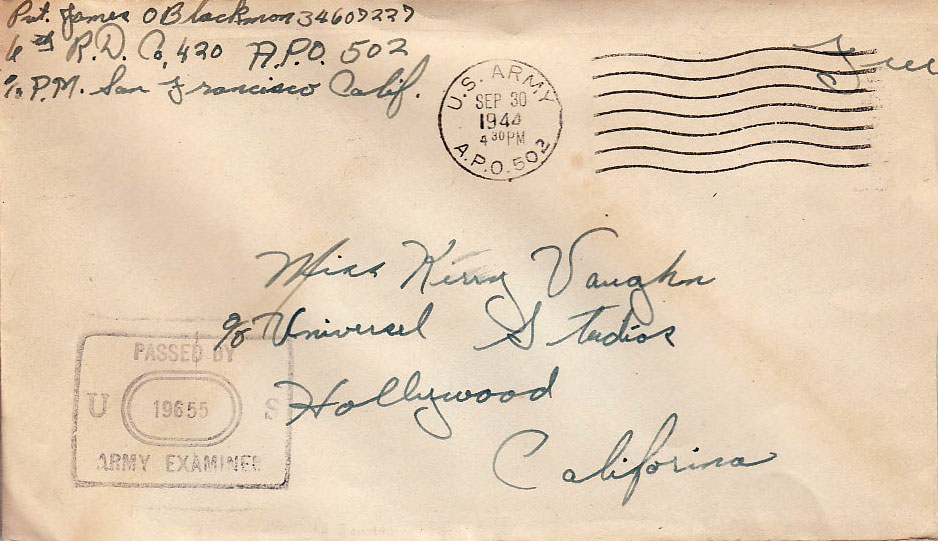 Pvt. James O Blackmon 34607227
6th R.D. Co, 420 A.P.O. 502
c/o P.M. San Francisco Calif.
U.S. ARMY
SEP 30
1944
4 30 PM
A.P.O. 502
Free
Miss Kerry Vaughn
c/o Universel Studios
Hollywood
Califorina
PASSED BY
U 19655 S
ARMY EXAMINER